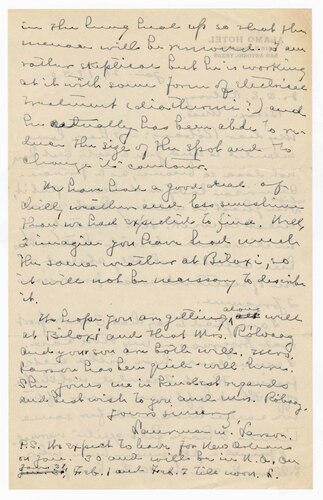 in the lung heal up so that the
menace will be removed. I am
rather skeptical but he is working
at it with some form of electrical
treatment (diathermi?) and
he actually has been able to re-
duce the size of the spot and to
change its contour.
We have had a good deal of
chilly weather and less sunshine
than we had expected to find. Well,
I imagine you have had much
the same weather at Biloxi, so
it will not be necessary to describe
it.
We hope you are getting along well
at Biloxi and that Mrs. Rölvaag
and your son are both well. Mrs.
Larson has been quite well here.
She joins me in kindest regards
and best wish to you and Mrs. Rölvaag.
Yours sincerely,
Laurence M. Larson.
P.S. We expect to leave for New Orleans
on Jan. 30 and will be in N.O. on
Feb. 1 and Feb. 2 till noon. L.
ALAMO HOTEL
SAN ANTONIO, TEXAS